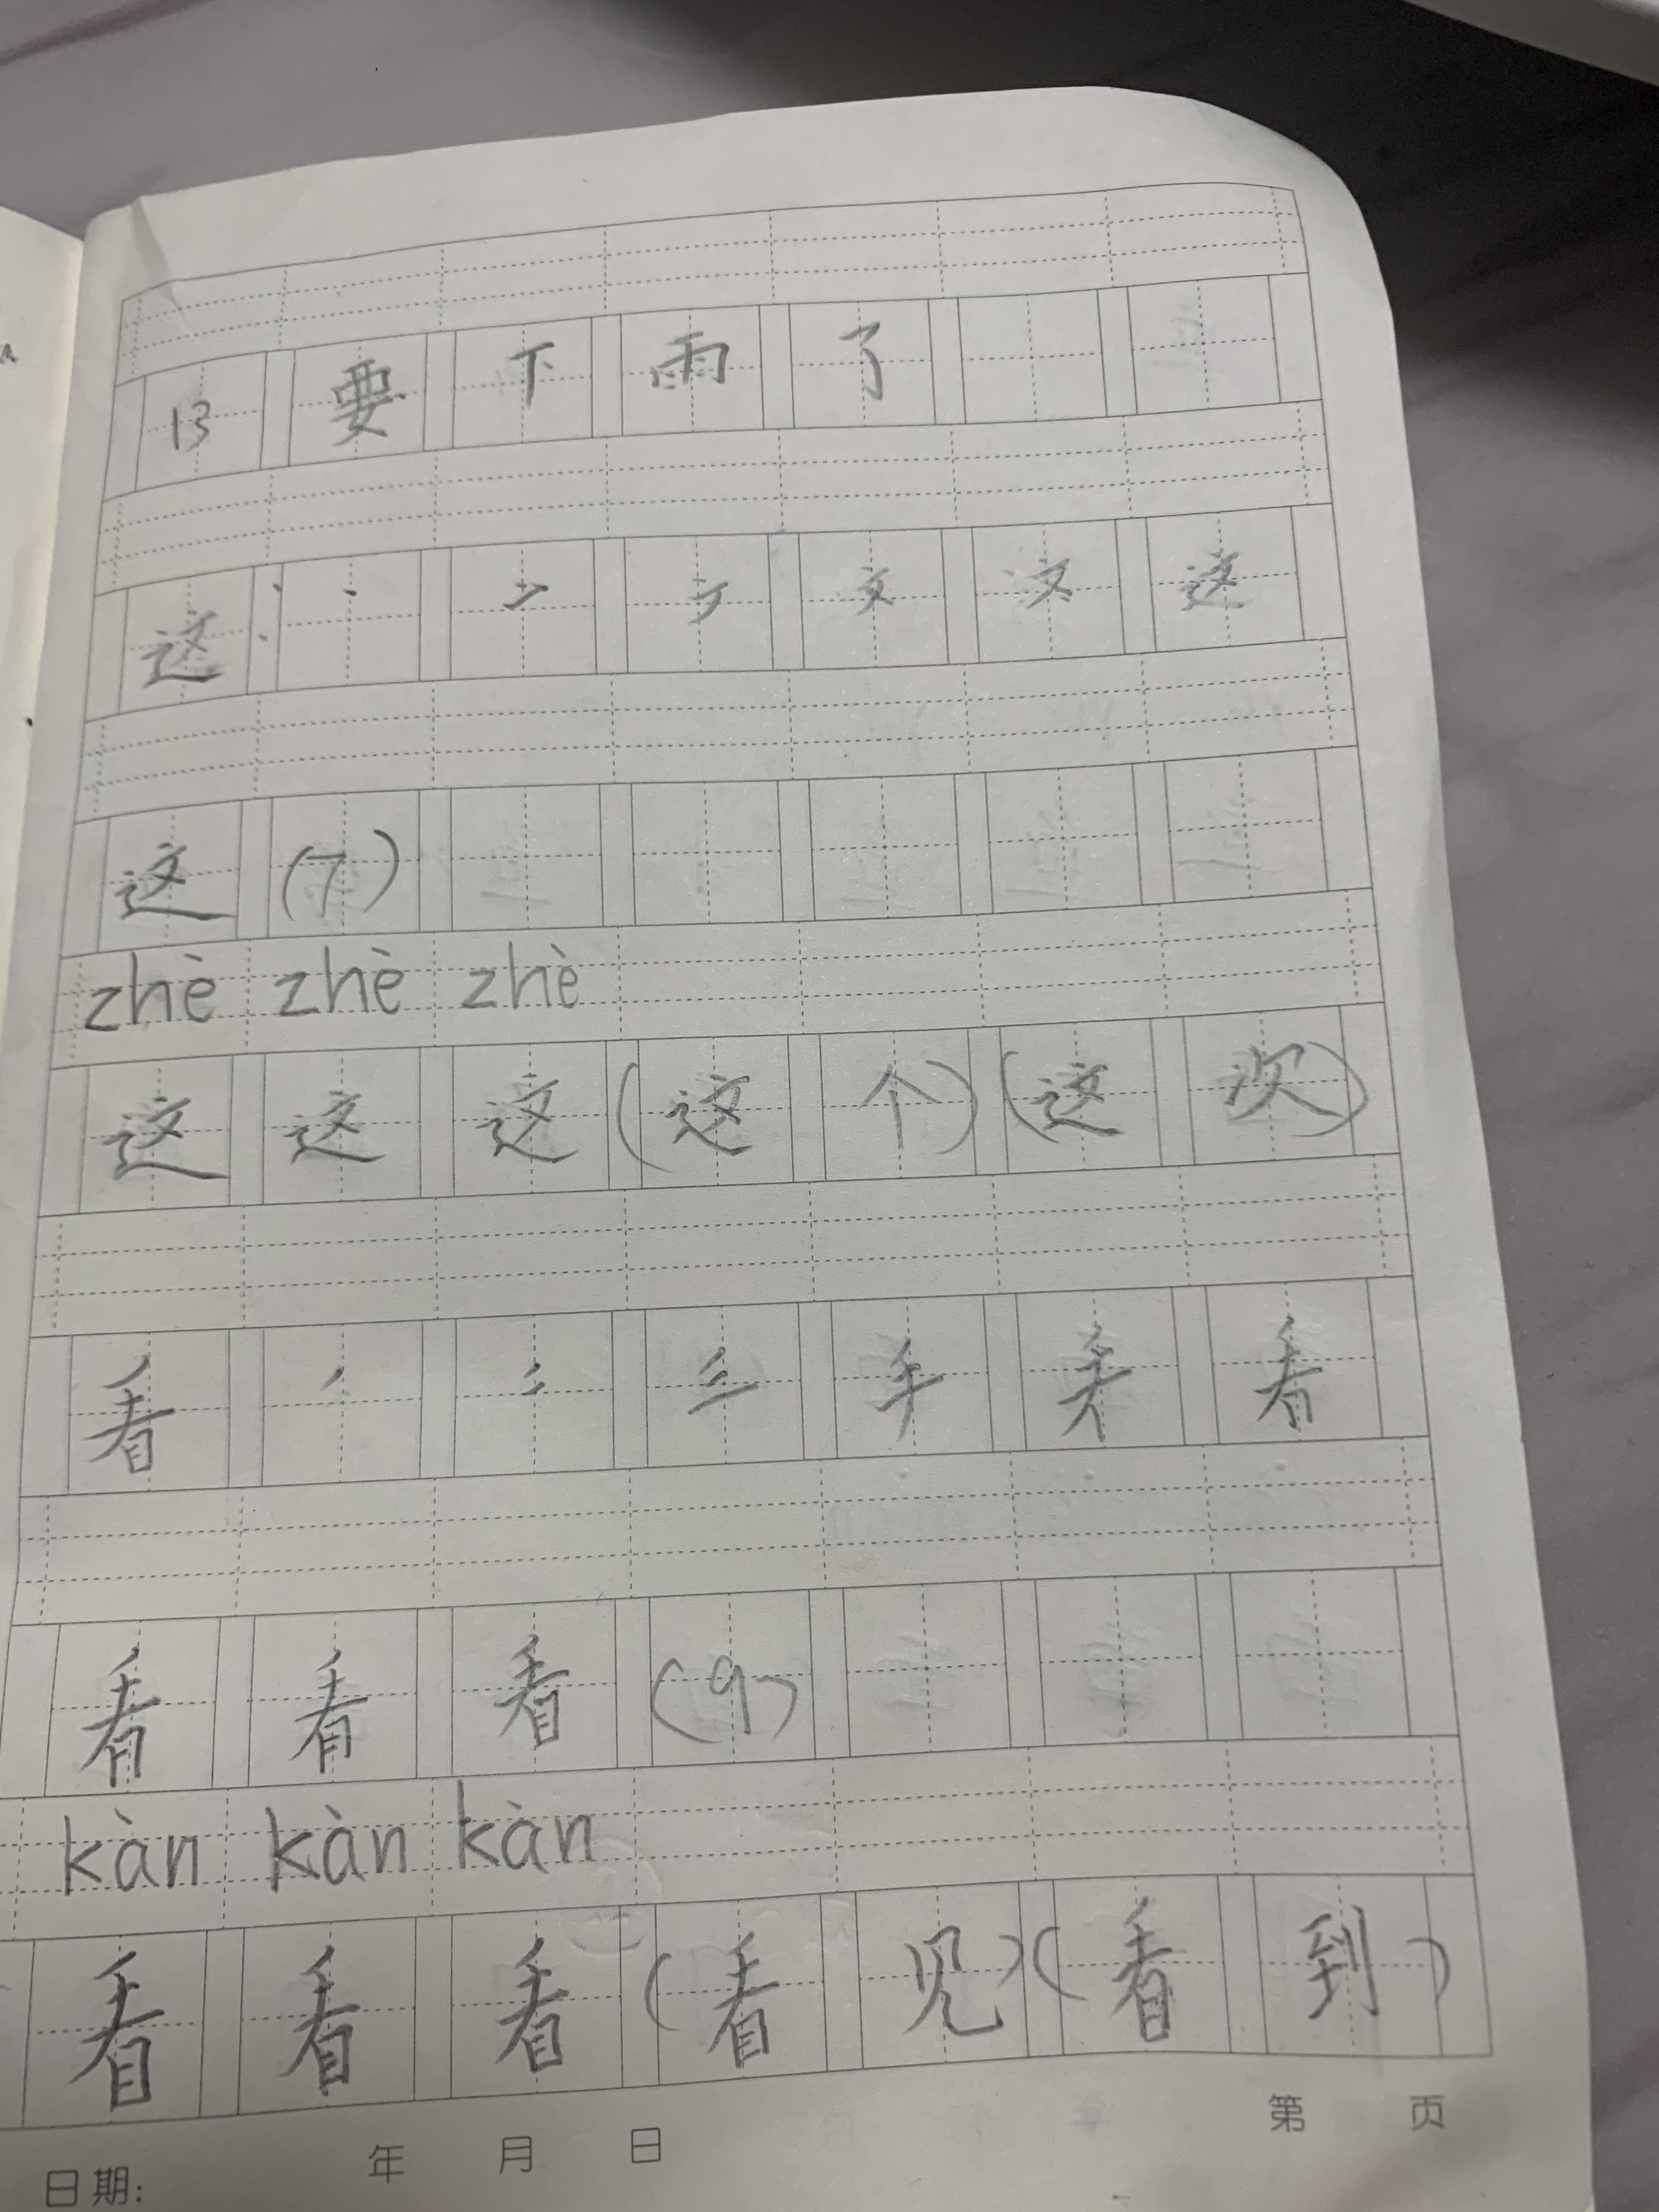 13 要下雨了
这 丶 二 ナ 文 文 这
这 (7)
zhè zhè zhè
这 这 这 (这个) (这次)
看 丿 二 三 手 看
看 看 看 (9)
kàn kàn kàn
看 看 看 (看见) (看到)
日期: 年 月 日 第 页